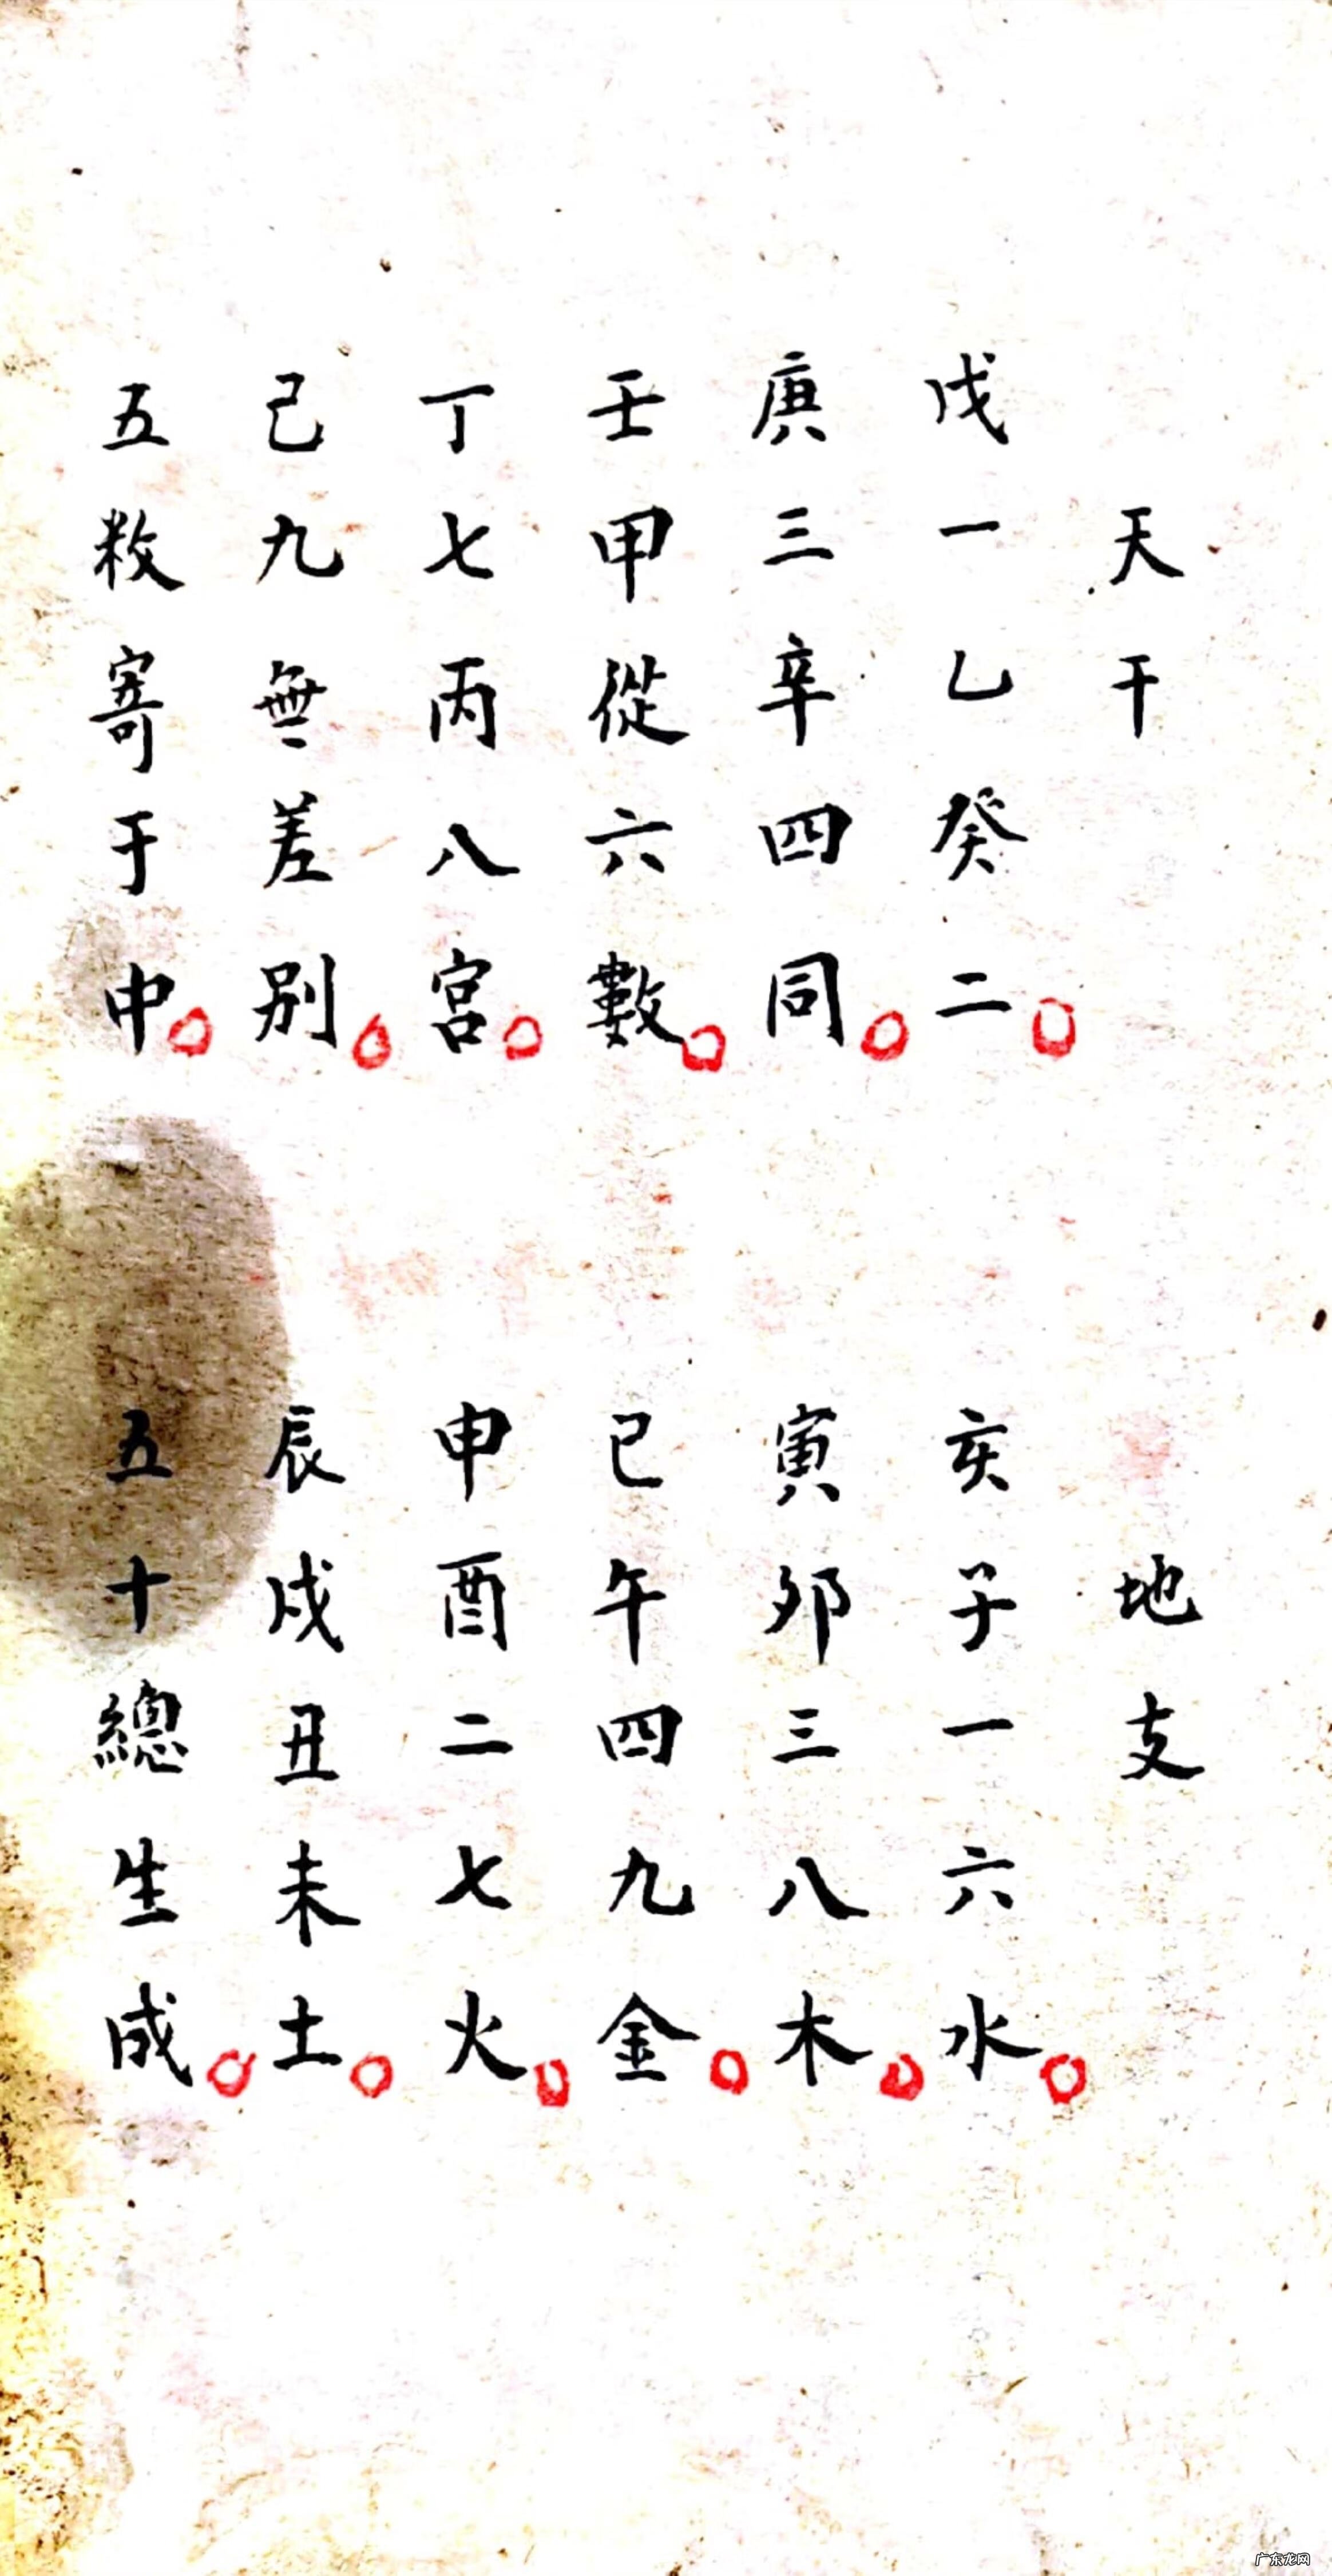 天干
戊一乙癸二
庚三辛四同
壬甲從六數
丁七丙八宮
己九無差別
五数寄于中
地支
亥子一六水
寅卯三八木
巳午四九金
申酉二七火
辰戌丑未土
五十總生成
广东龙网